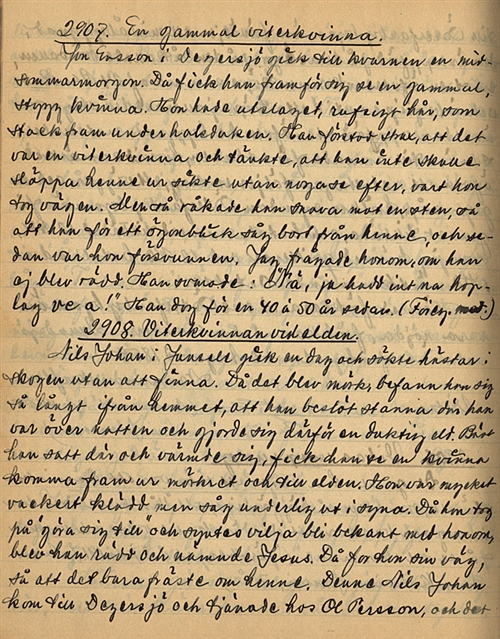 2907. En gammal viterkvinna.
Jon Ersson i Degersjö gick till kvarnen en mid-
sommarmorgon. Då fick han framför sig se en gammal,
stygg kvinna. Hon hade utslaget, rufsigt hår, som
stack fram under halsduken. Han förstod strax, att det
var en viterkvinna och tänkte, att han inte skulle
släppa henne ur sikte utan noga se efter, vart hon
tog vägen. Men så råkade han snava mot en sten, så
att han för ett ögonblick såg bort från henne, och se-
dan var hon försvunnen. Jag frågade honom, om han
ej blev rädd. Han svarade: "Nä, ja hadd int na
lag ve a!" Han dog för en 40 à 50 år sedan. (Föreg. med.)
2908. Viterkvinnan vid elden.
Nils Johan i Junsele gick en dag och sökte hästar i
skogen utan att finna. Då det blev mörkt, befann han sig
så långt ifrån hemmet, att han beslöt stanna där han
var över natten och gjorde sig därför en duktig eld. Bäst
han satt där och värmde sig, fick han se en kvinna
komma fram ur mörkret och till elden. Hon var mycket
vackert klädd men såg underlig ut i syna. Då hon tog
på "göra sig till" och syntes vilja bli bekant med honom,
blev han rädd och nämnde Jesus. Då for hon sin väg,
så att det bara fräste om henne. Denne Nils Johan
kom till Degersjö och tjänade hos Ol Persson, och det